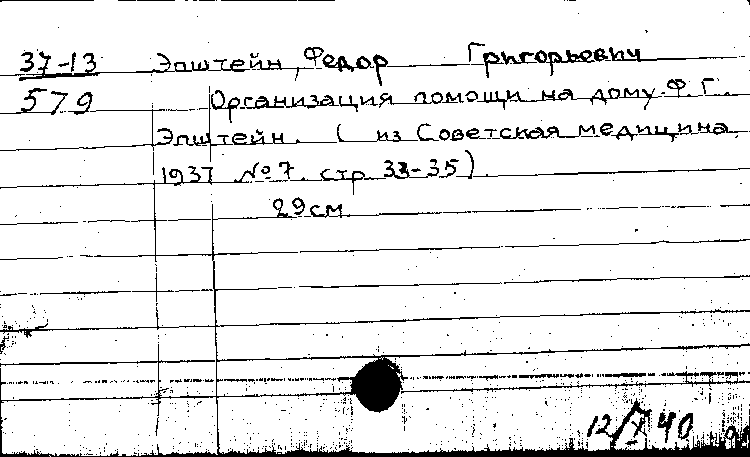 37-13 Эпштейн, Федор Григорьевич
579 Организация помощи на дому. Ф. Г.
Эпштейн. ( из Советская медицина,
1937 № 7. стр. 33-35).
29 см.
12/X 40